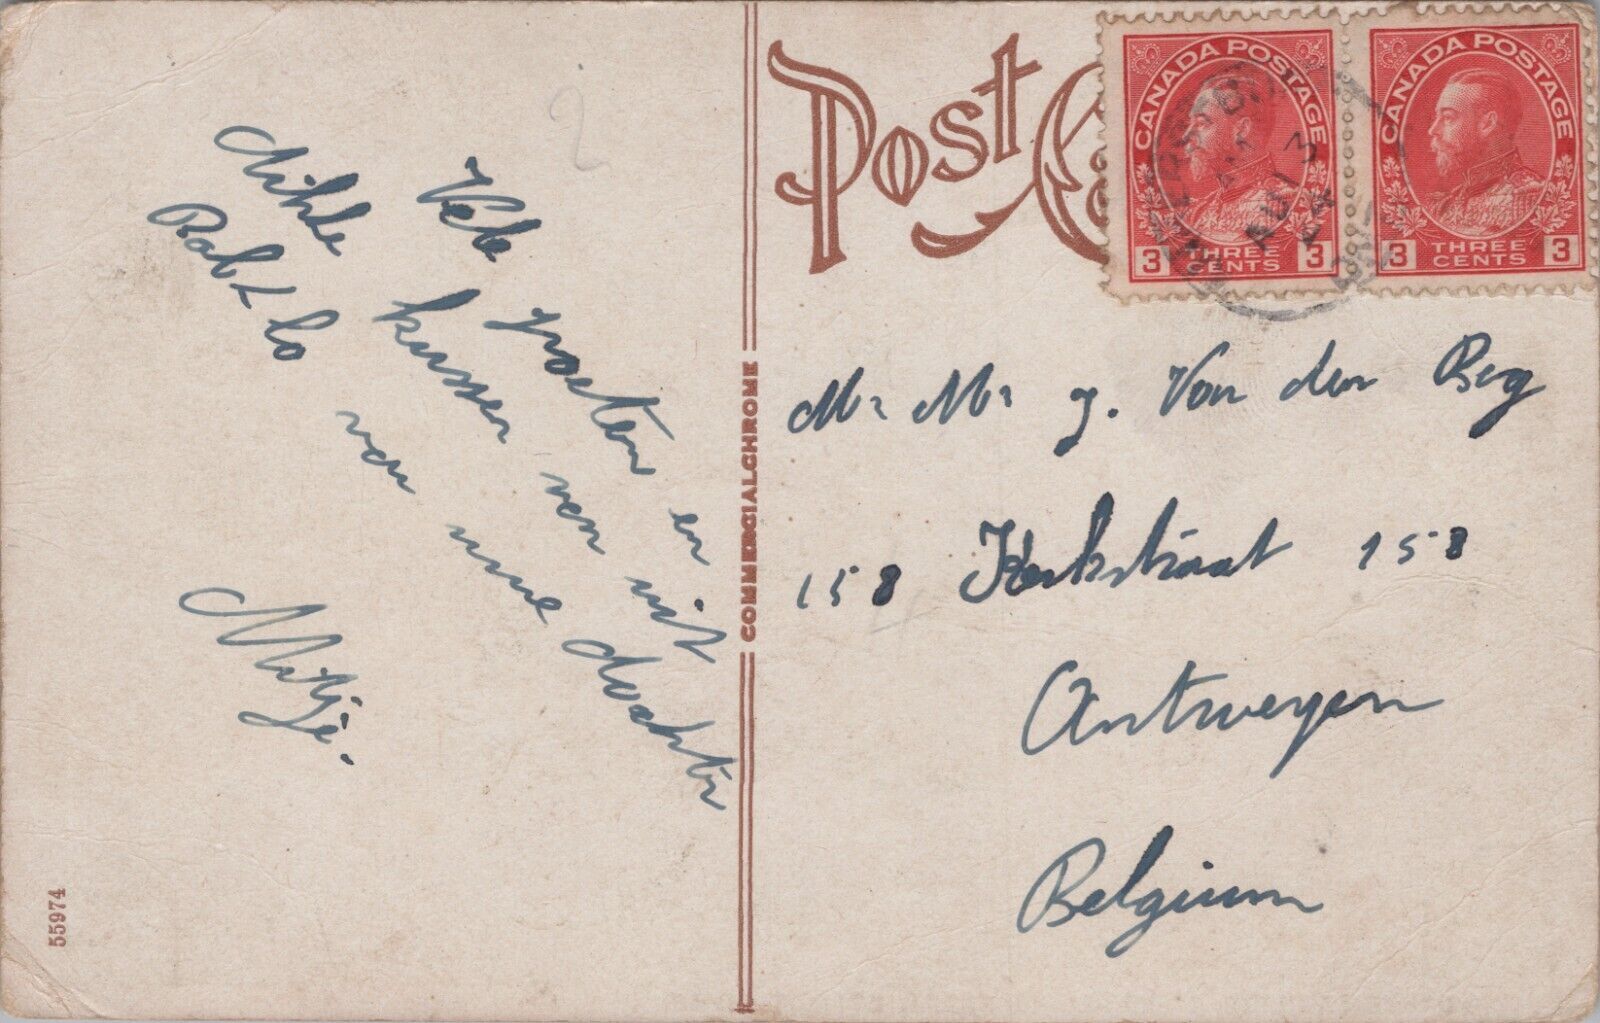 Vele groeten en
dikke kussen van uit
Rob L Lo van uwe dochter
Mitje.
55974
COMMERCIALCHROME
Post
CANADA POSTAGE
3 THREE CENTS 3
CANADA POSTAGE
3 THREE CENTS 3
AU 3
24
ONT
Mr Mr J. Van den Berg
158 Kerkstraat 158
Antwerpen
Belgium